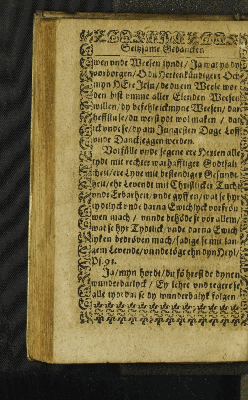 Seltzame Gedancken
wen vnde Weesen synde / Ja wat ys dy
vorborgen / O du Herten kündiger Och
myn HEre Jesu / de du ein Weese wor
den byst vmme aller Elenden Weesen
willen / dy befehle ick myne Weesen /
du werst ydt wol maken /
ick vnde se / dy am Jüngesten Dage Loff
vnde Danck seggen werden.
vnde regere ere Herten alle
tydt mit rechter warhafftiger Godtsali
heit / ere Lyue mit bestendiger Gesunde
heit / ehr Levendt mit Christlicker Tucht
vnde Erbarheit / vnde giff en / wat se hyr
tydtlyck vnde darna Ewichlyck
wen mach / vnnde behöde se vör allem /
wat se hyr Tydtlick / vnde darna Ewich
lyken bedröven mach / sadige se mit lan
gem Levende / vnnde töge ehn dyn Heyl /
Ps. 91.
Ja / myn hordt / du
wunderbarlyck / Ey lehre vnd regere se
alle tydt dat se dy wunderbalyk folgen /